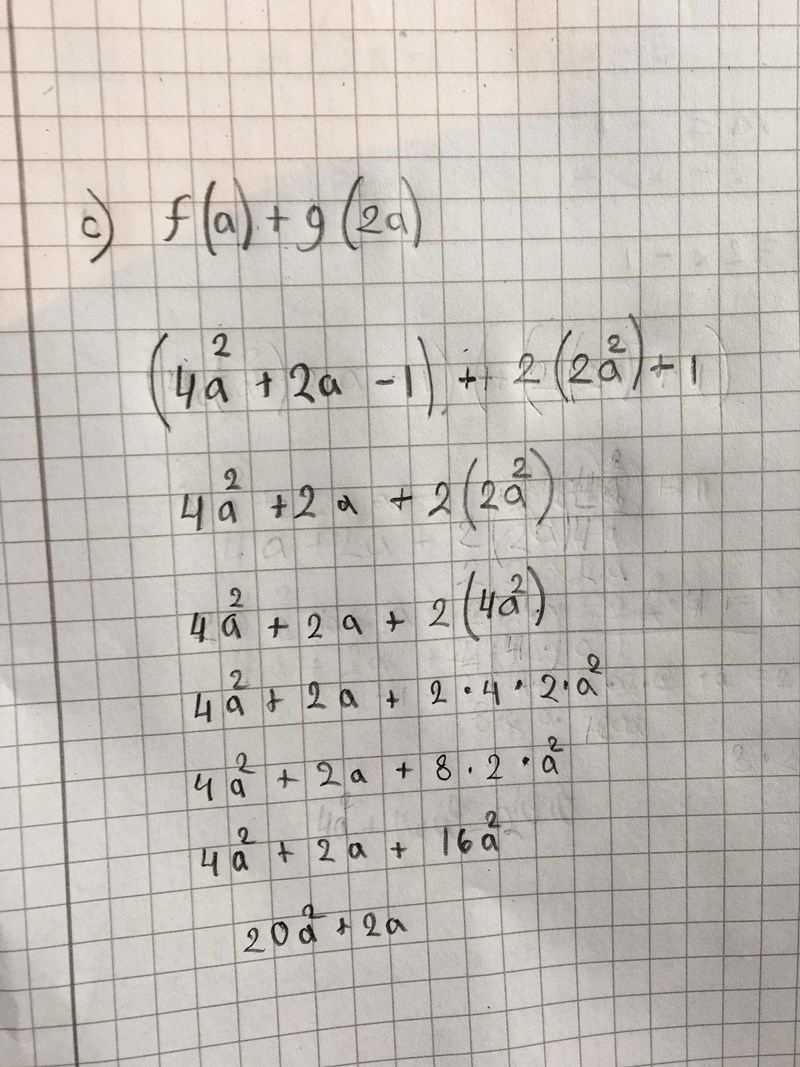 c) f(a) + g(2a)
(4a² + 2a - 1) + 2(2a²) + 1
4a² + 2a + 2(2a²)
4a² + 2a + 2(4a²)
4a² + 2a + 2·4·2·a²
4a² + 2a + 8·2·a²
4a² + 2a + 16a²
20a² + 2a